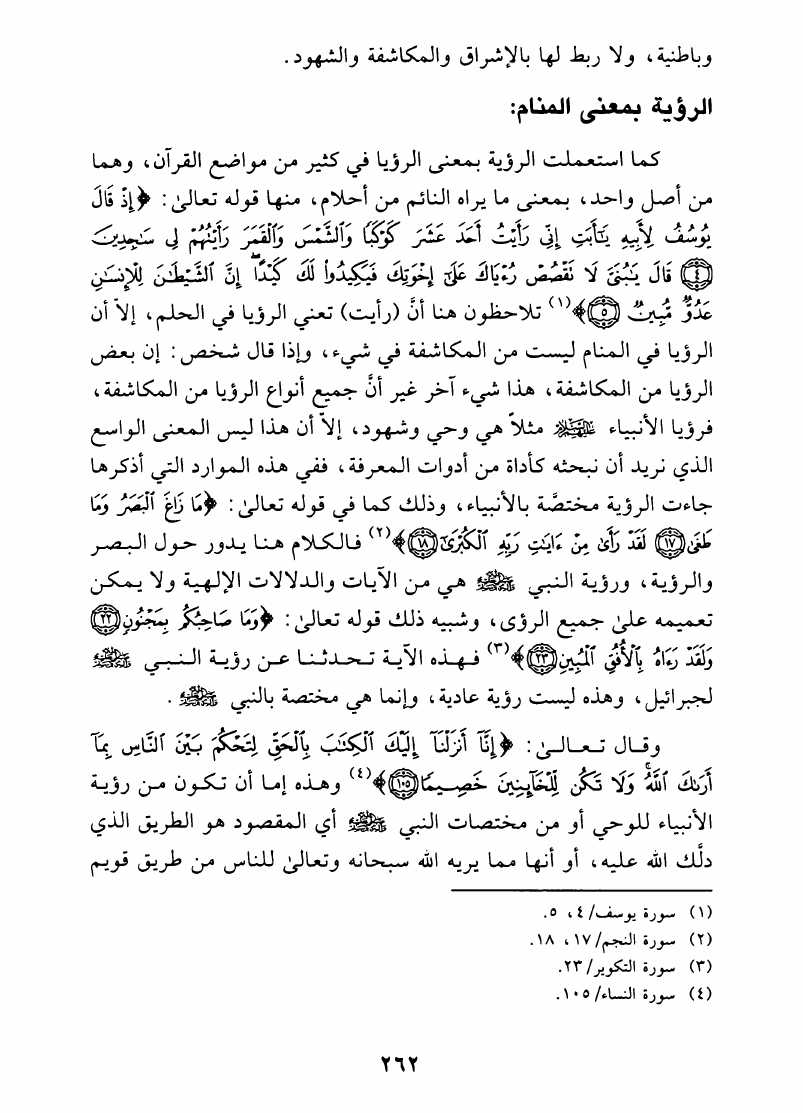 وباطنية، ولا ربط لها بالإشراق والمكاشفة والشهود.
الرؤية بمعنى المنام:
كما استعملت الرؤية بمعنى الرؤيا في كثير من مواضع القرآن، وهما
من أصل واحد، بمعنى ما يراه النائم من أحلام، منها قوله تعالىٰ: ﴿إِذْ قَالَ
يُوسُفُ لِأَبِيهِ يَٰٓأَبَتِ إِنِّي رَأَيْتُ أَحَدَ عَشَرَ كَوْكَبًا وَٱلشَّمْسَ وَٱلْقَمَرَ رَأَيْتُهُمْ لِي سَٰجِدِينَ
﴿٤﴾ قَالَ يَٰبُنَيَّ لَا تَقْصُصْ رُءْيَاكَ عَلَىٰٓ إِخْوَتِكَ فَيَكِيدُوا۟ لَكَ كَيْدًا ۖ إِنَّ ٱلشَّيْطَٰنَ لِلْإِنسَٰنِ
عَدُوٌّ مُّبِينٌ ﴿٥﴾﴾(١) تلاحظون هنا أنَّ (رأيت) تعني الرؤيا في الحلم، إلاّ أن
الرؤيا في المنام ليست من المكاشفة في شيء، وإذا قال شخص: إن بعض
الرؤيا من المكاشفة، هذا شيء آخر غير أنَّ جميع أنواع الرؤيا من المكاشفة،
فرؤيا الأنبياء مثلاً هي وحي وشهود، إلاّ أن هذا ليس المعنى الواسع
الذي نريد أن نبحثه كأداة من أدوات المعرفة، ففي هذه الموارد التي أذكرها
جاءت الرؤية مختصَّة بالأنبياء، وذلك كما في قوله تعالىٰ: ﴿مَا زَاغَ ٱلْبَصَرُ وَمَا
طَغَىٰ ﴿١٧﴾ لَقَدْ رَأَىٰ مِنْ ءَايَٰتِ رَبِّهِ ٱلْكُبْرَىٰٓ ﴿١٨﴾﴾(٢) فالكلام هنا يدور حول البصر
والرؤية، ورؤية النبي ﷺ هي من الآيات والدلالات الإلهية ولا يمكن
تعميمه علىٰ جميع الرؤى، وشبيه ذلك قوله تعالىٰ: ﴿وَمَا صَاحِبُكُم بِمَجْنُونٍ ﴿٢٢﴾
وَلَقَدْ رَءَاهُ بِٱلْأُفُقِ ٱلْمُبِينِ ﴿٢٣﴾﴾(٣) فهذه الآية تحدثنا عن رؤية النبي ﷺ
لجبرائيل، وهذه ليست رؤية عادية، وإنما هي مختصة بالنبي ﷺ.
وقال تعالىٰ: ﴿إِنَّآ أَنزَلْنَآ إِلَيْكَ ٱلْكِتَٰبَ بِٱلْحَقِّ لِتَحْكُمَ بَيْنَ ٱلنَّاسِ بِمَآ
أَرَىٰكَ ٱللَّهُ ۚ وَلَا تَكُن لِّلْخَآئِنِينَ خَصِيمًا ﴿١٠٥﴾﴾(٤) وهذه إما أن تكون من رؤية
الأنبياء للوحي أو من مختصات النبي ﷺ أي المقصود هو الطريق الذي
دلَّك الله عليه، أو أنها مما يريه الله سبحانه وتعالىٰ للناس من طريق قويم
(١) سورة يوسف/ ٤، ٥.
(٢) سورة النجم/ ١٧، ١٨.
(٣) سورة التكوير/ ٢٣.
(٤) سورة النساء/ ١٠٥.
٢٦٢